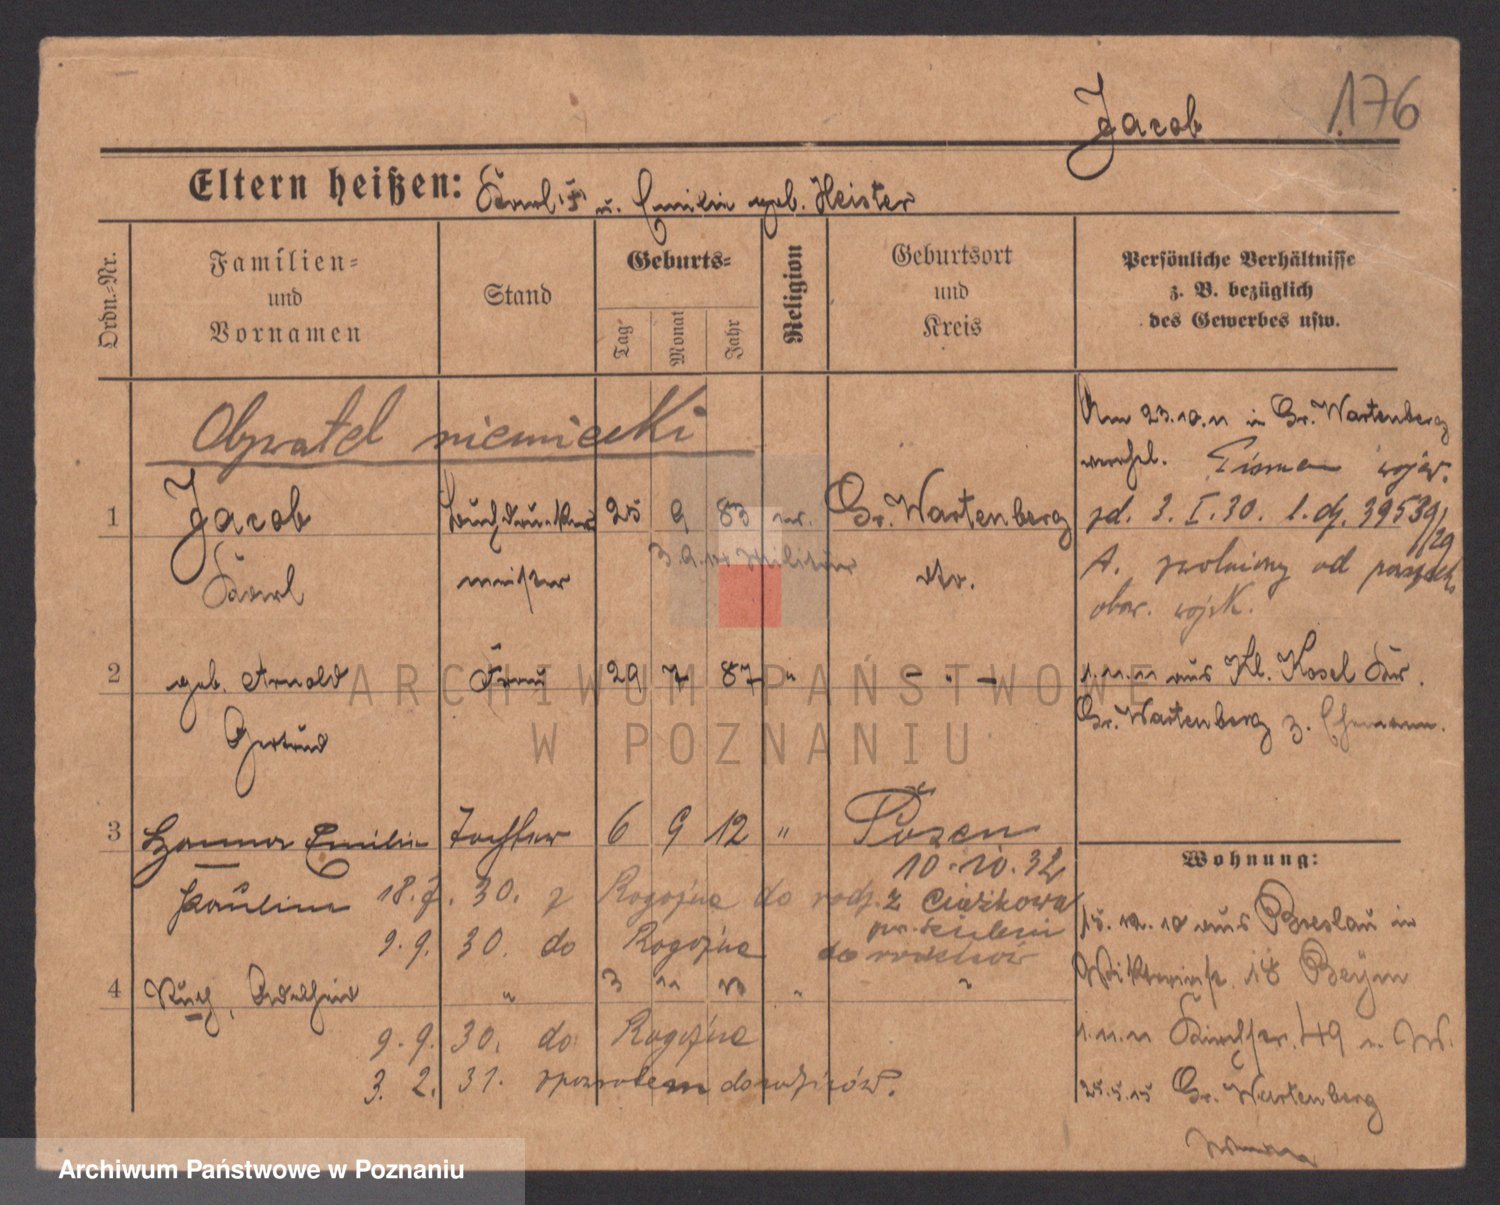 Jacob 176
Eltern heißen: Karl u. Emilie geb. Heister
Ordn.-Nr.
Familien-
und
Vornamen
Stand
Geburts-
Tag
Monat
Jahr
Religion
Geburtsort
und
Kreis
Persönliche Verhältnisse
z. B. bezüglich
des Gewerbes usw.
Obywatel niemiecki
Am 23.10.11 in Gr. Wartenberg
verehel. Pismem wojew.
1 Jacob Buchdrucker 25 9 83 Gr. Wartenberg
pd. 3. I. 30. l. dz. 39539/29
Militär
Karl meister dto.
A. zwolniony od
obow. wojsk.
2 geb. Arnold Frau 29 7 87 " - " -
1.11.11 aus Kl. Kosel Kr.
Gertrud
Gr. Wartenberg z. Ehemann.
3 Hanna Emilie Tochter 6 9 12 " Posen
10.10.32
Pauline 18.7.30. z Rogoźna do rodz. z Ciążkowa
9.9.30. do Rogoźna do rodziców
4 Ruth, Adelheid " 3 11 " "
9.9.30. do Rogoźna
3.2.31. zpowrotem do rodziców.
Wohnung:
15.12.10 aus Breslau in
18 Beym
1.11.11 Kirchstr. 49 n. W.
25.5.15 Gr. Wartenberg
ARCHIWUM PAŃSTWOWE
W POZNANIU
Archiwum Państwowe w Poznaniu